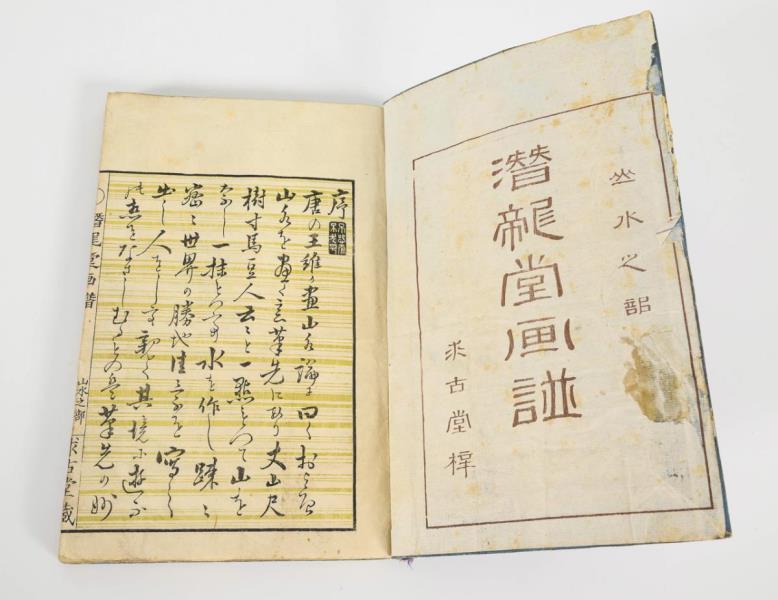 山水之部
潛龍堂画譜
求古堂梓
序
唐の王維う畫山水論に曰くおよそ
山水を畫く意筆先にあり丈山尺
樹寸馬豆人云々と一點とつて山を
なし一抹とつて水を作し踈々
密々世界の勝地佳景を寫し
出し人をして親く其境に遊ふ
の思をなさしむるもの是筆先の妙
〇潛龍堂画譜 山水之部 求古堂蔵